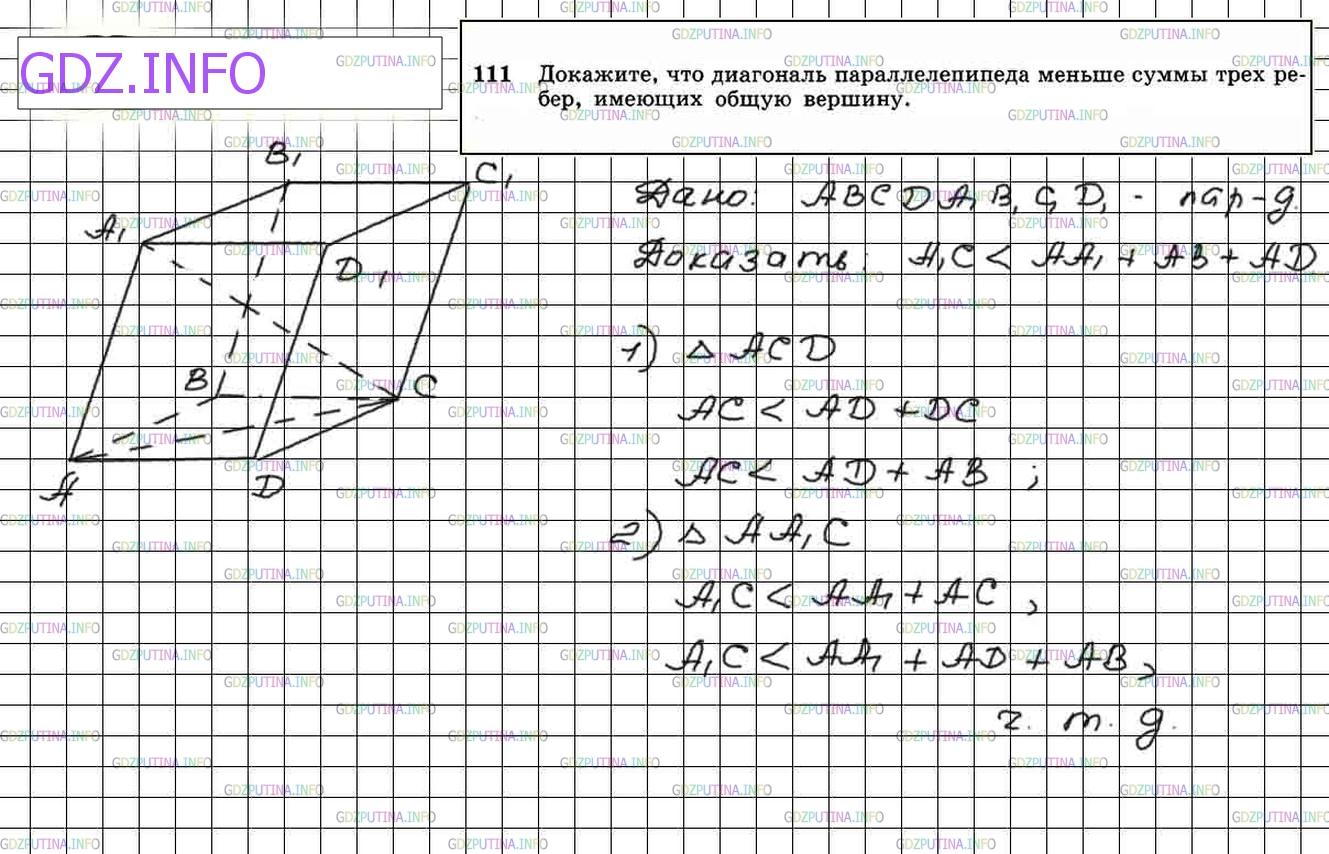 GDZ.INFO
111 Докажите, что диагональ параллелепипеда меньше суммы трех ре-
бер, имеющих общую вершину.
B₁
C₁
A₁
D₁
B
C
A
D
Дано: ABCDA₁B₁C₁D₁ - пар-д.
Доказать: A₁C < AA₁ + AB + AD
1) △ ACD
AC < AD + DC
AC < AD + AB ;
2) △ AA₁C
A₁C < AA₁ + AC ,
A₁C < AA₁ + AD + AB,
ч. т. д.
GDZPUTINA.INFO